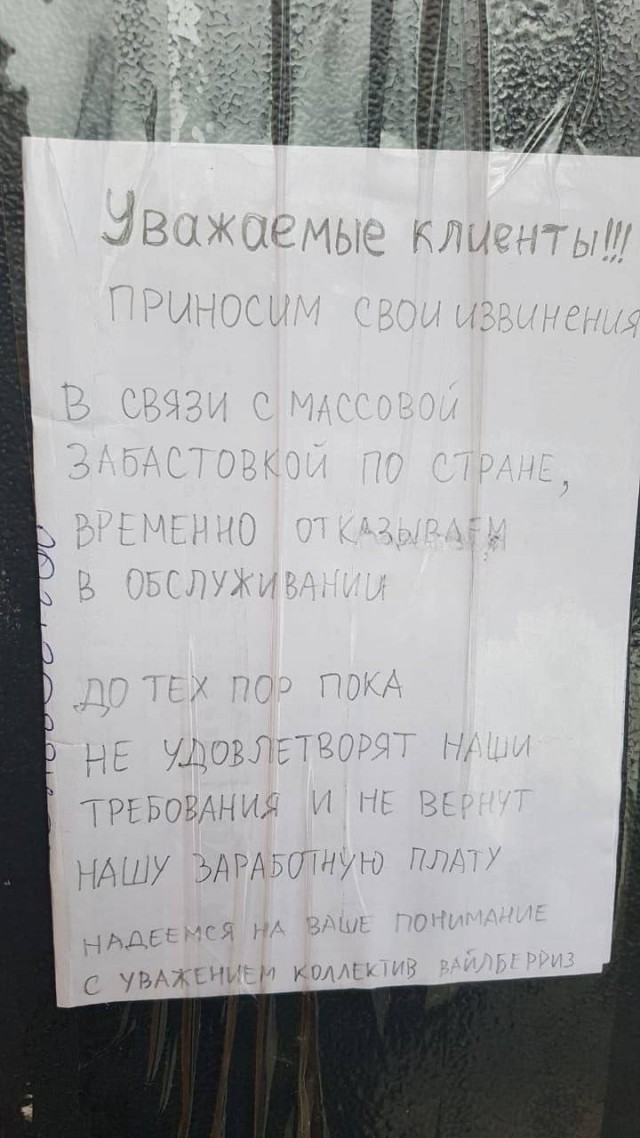 Уважаемые клиенты!!!
ПРИНОСИМ СВОИ ИЗВИНЕНИЯ
В СВЯЗИ С МАССОВОЙ
ЗАБАСТОВКОЙ ПО СТРАНЕ,
ВРЕМЕННО ОТКАЗЫВАЕМ
В ОБСЛУЖИВАНИИ
ДО ТЕХ ПОР ПОКА
НЕ УДОВЛЕТВОРЯТ НАШИ
ТРЕБОВАНИЯ И НЕ ВЕРНУТ
НАШУ ЗАРАБОТНУЮ ПЛАТУ
НАДЕЕМСЯ НА ВАШЕ ПОНИМАНИЕ
С УВАЖЕНИЕМ КОЛЛЕКТИВ ВАЙЛБЕРРИЗ